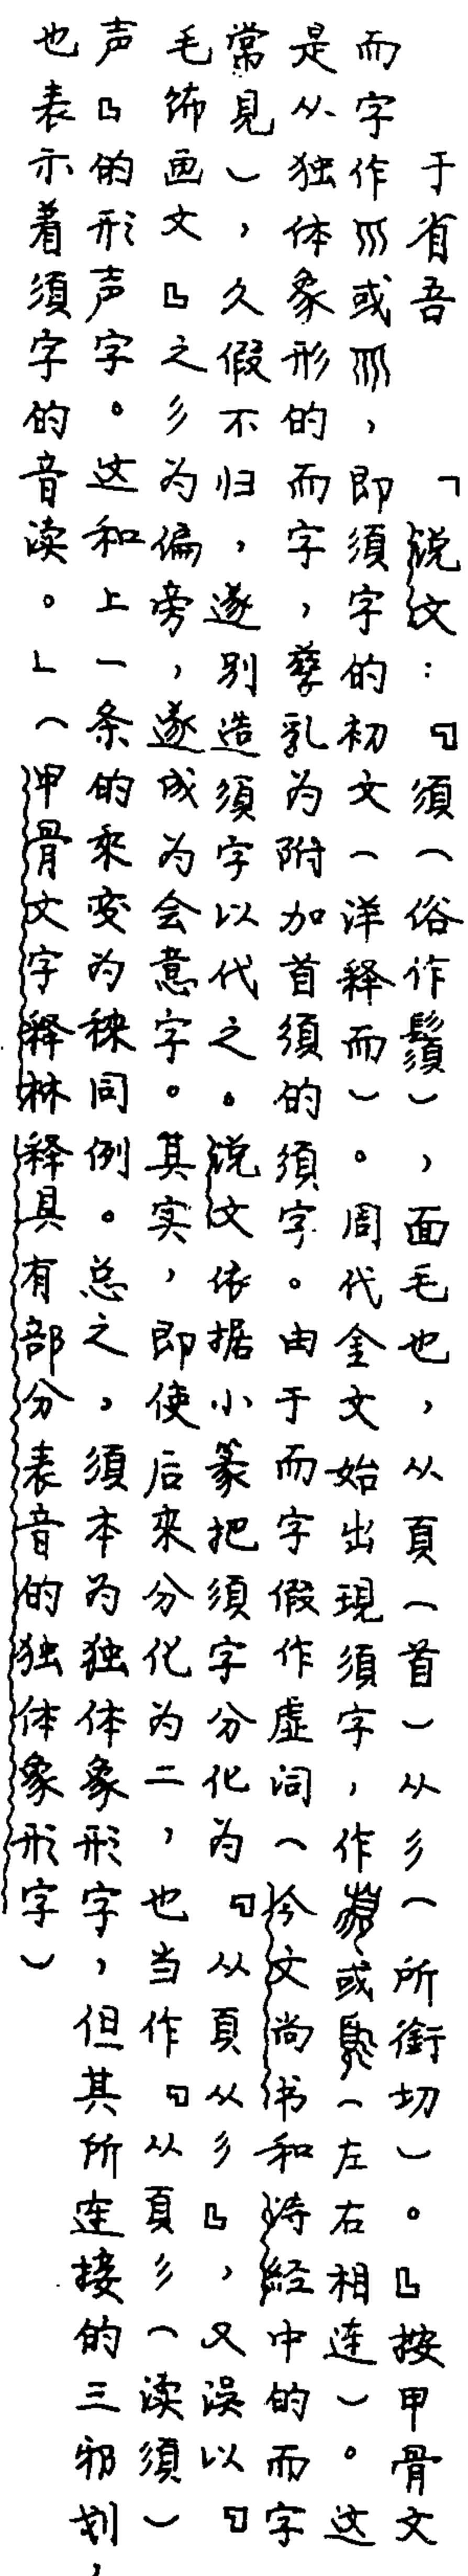 于省吾 「说文:『須(俗作鬚),面毛也,从頁(首)从彡(所銜切)。』按甲骨文
而字作或,即須字的初文(洋释而)。周代金文始出現須字,作或(左右相连)。这
是从独体象形的而字,孳乳为附加首須的須字。由于而字假作虚词(今文尚书和诗経中的而字
常見),久假不归,遂别造須字以代之。说文依据小篆把須字分化为『从頁从彡』,又误以『
毛饰画文』之彡为偏旁,遂成为会意字。其实,即使后来分化为二,也当作『从頁彡(读須)
声』的形声字。这和上一条的來变为秣同例。总之,須本为独体象形字,但其所连接的三邪划,
也表示着須字的音读。」(甲骨文字释林释具有部分表音的独体象形字)